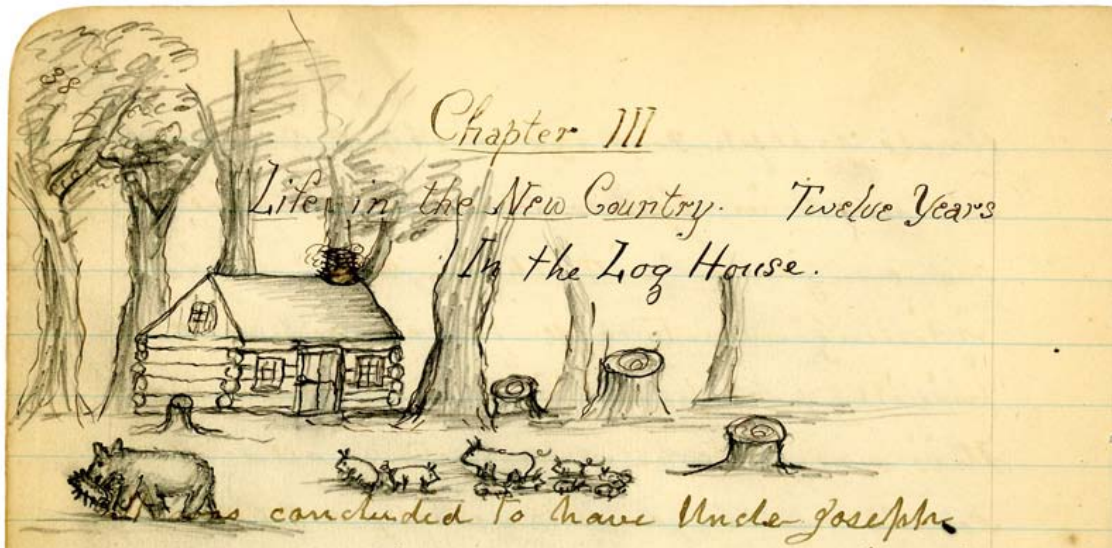 38
Chapter III
Life in the New Country. Twelve Years
In the Log House.
concluded to have Uncle Joseph